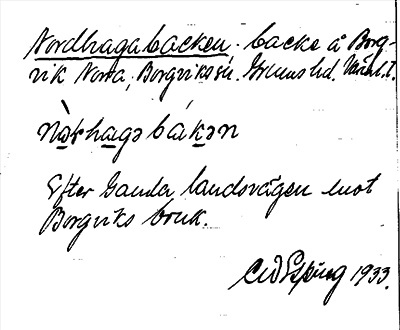 Nordhagabacken. backe å Borg-
vik Norra, Borgviks sn. Grums hd. Värml.
nòrhagəbákən
Efter Gamla landsvägen mot
Borgviks bruk.
1933.